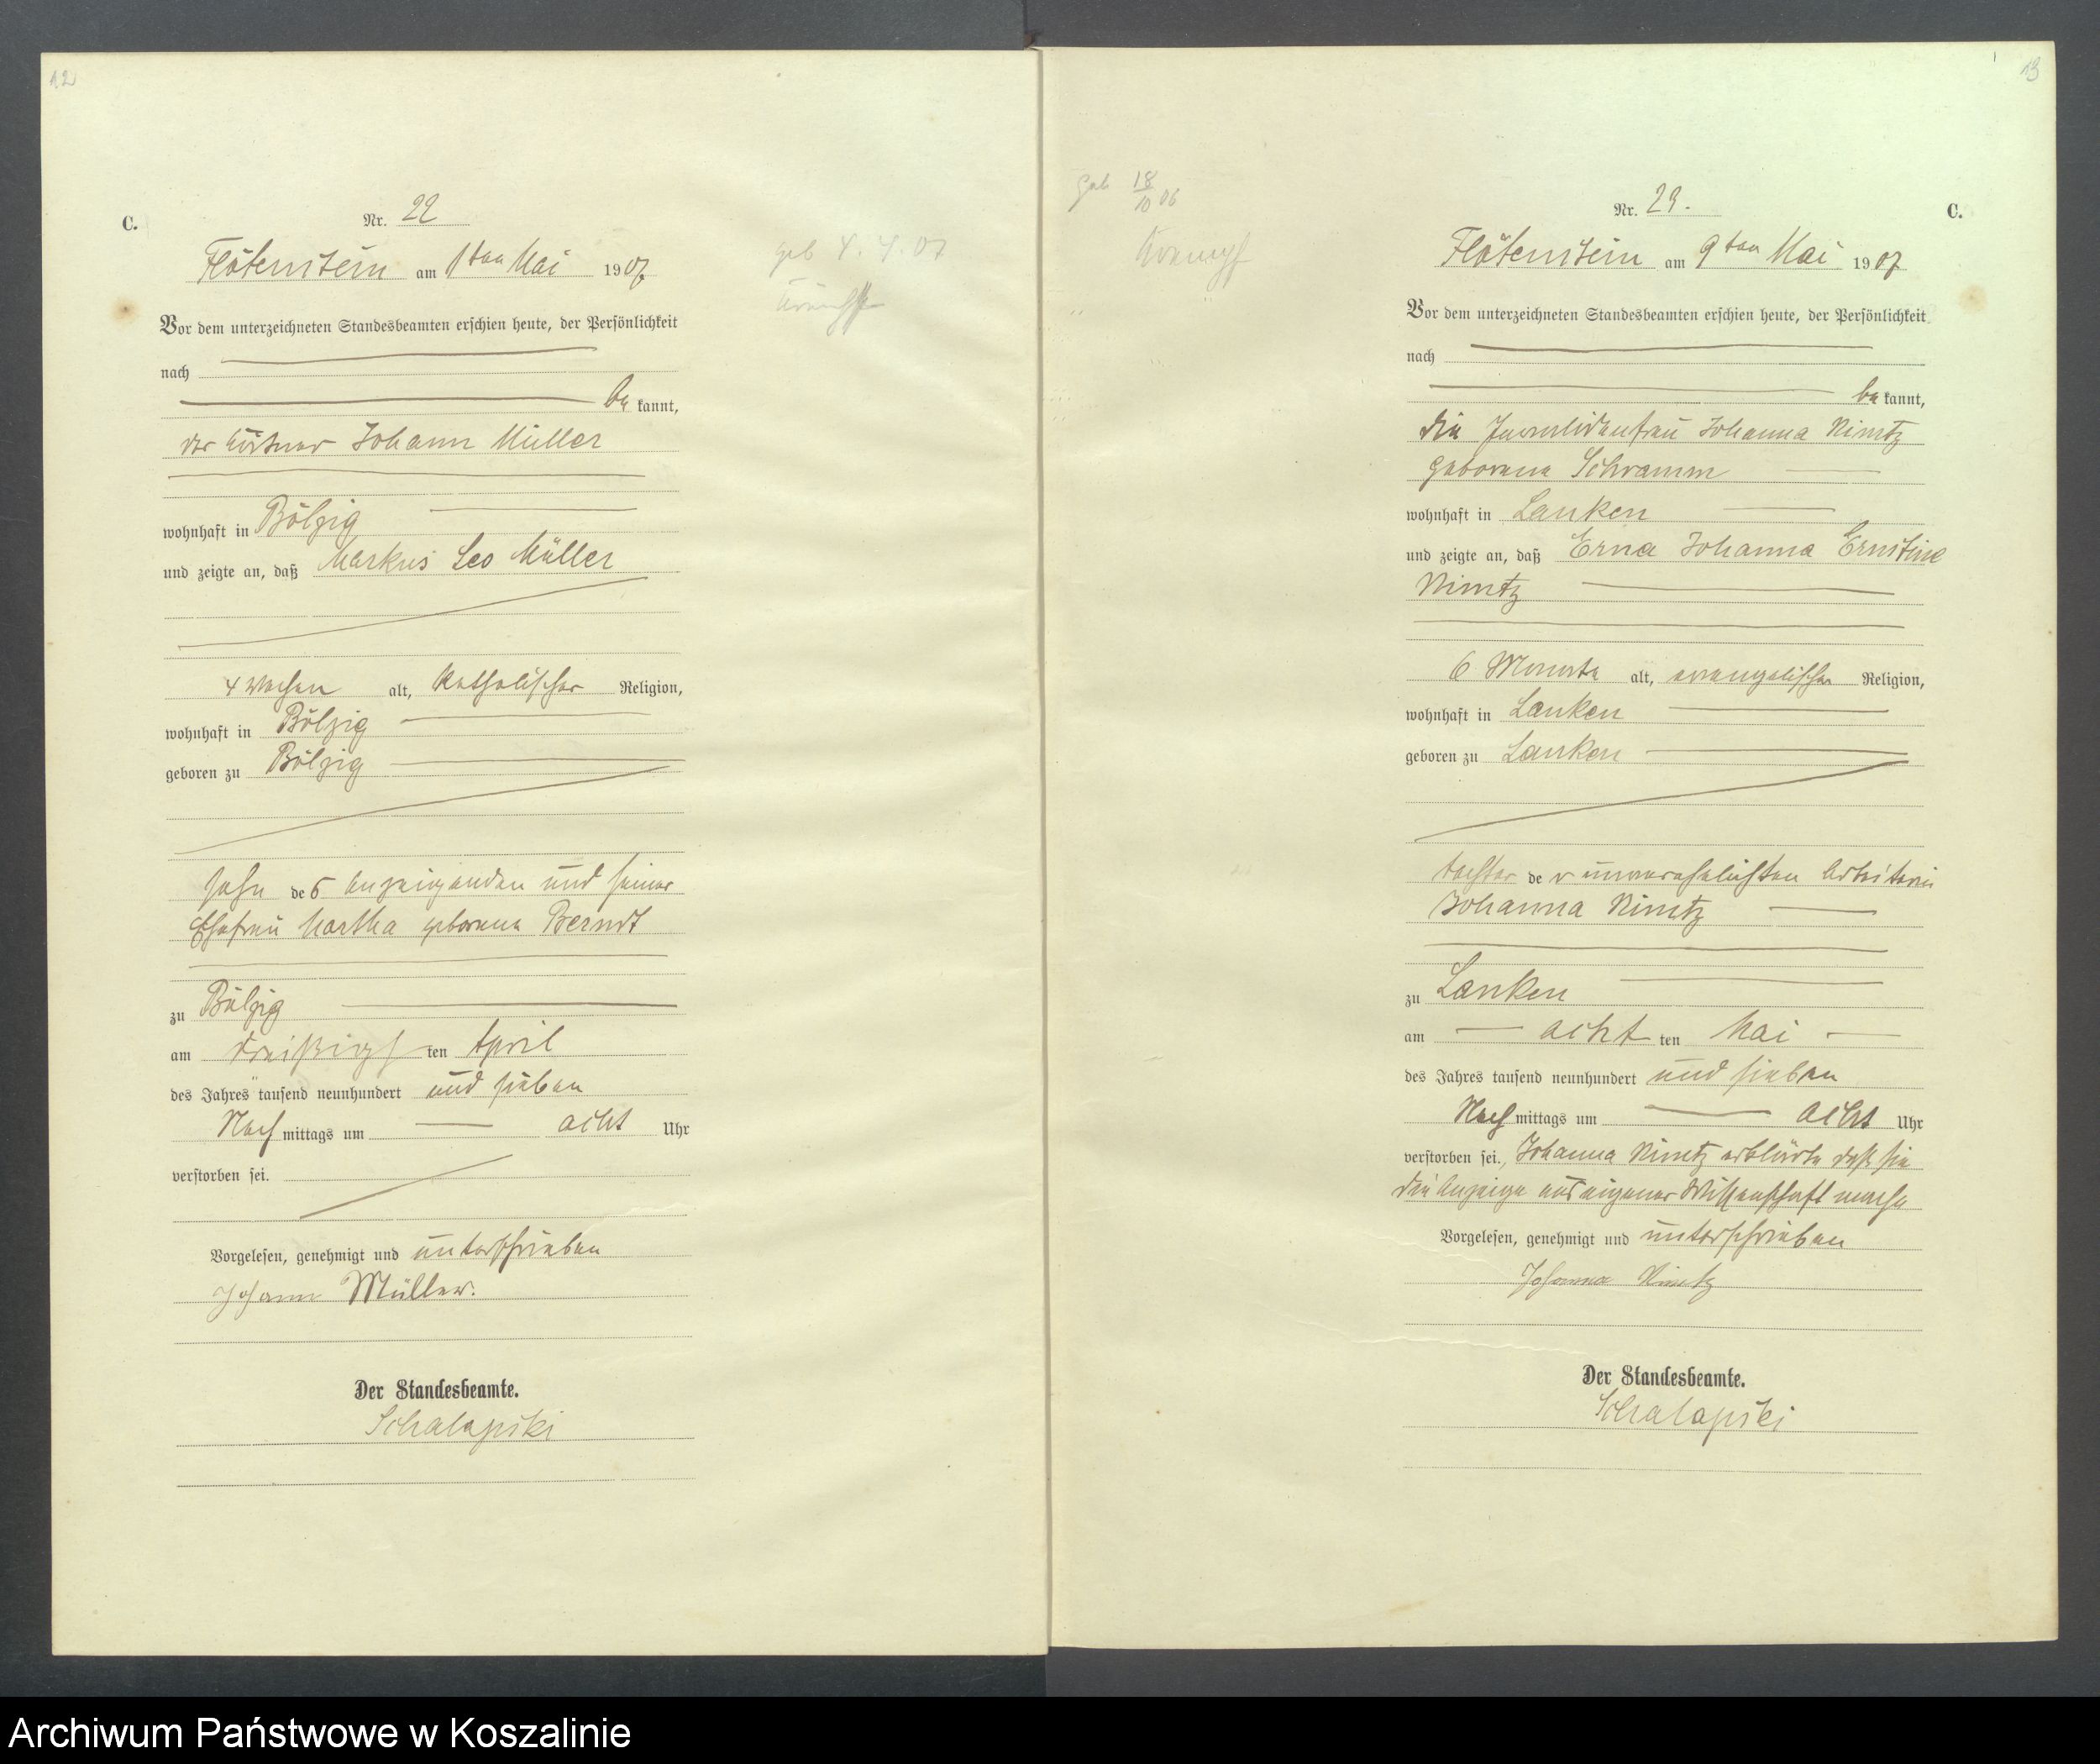 12
C.
Nr. 22
Flötenstein am 1ten Mai 1907
geb 4. 4. 07
Krämpfe
Vor dem unterzeichneten Standesbeamten erschien heute, der Persönlichkeit
nach
be kannt,
der Johann Müller
wohnhaft in Bölzig
und zeigte an, daß Markus Leo Müller
4 Wochen alt, katholischer Religion,
wohnhaft in Bölzig
geboren zu Bölzig
Sohn des Anzeigenden und seiner
Ehefrau Martha geborene Berndt
zu Bölzig
am dreißigsten April
des Jahres tausend neunhundert und sieben
Nach mittags um acht Uhr
verstorben sei.
Vorgelesen, genehmigt und unterschrieben
Johann Müller.
Der Standesbeamte.
Schalapski
13
Nr. 23.
C.
geb 18/10 06
Krampf
Flötenstein am 9ten Mai 1907
Vor dem unterzeichneten Standesbeamten erschien heute, der Persönlichkeit
nach
be kannt,
die Invalidenfrau Johanna Nimtz
geborene Schramm
wohnhaft in Lanken
und zeigte an, daß Erna Johanna Ernstine
Nimtz
6 Monate alt, evangelischer Religion,
wohnhaft in Lanken
geboren zu Lanken
Tochter der unverehelichten Arbeiterin
Johanna Nimtz
zu Lanken
am achten Mai
des Jahres tausend neunhundert und sieben
Nach mittags um acht Uhr
verstorben sei., Johanna Nimtz erklärte daß sie
die Anzeige aus eigener Wissenschaft mache
Vorgelesen, genehmigt und unterschrieben
Johanna Nimtz
Der Standesbeamte.
Schalapski
Archiwum Państwowe w Koszalinie